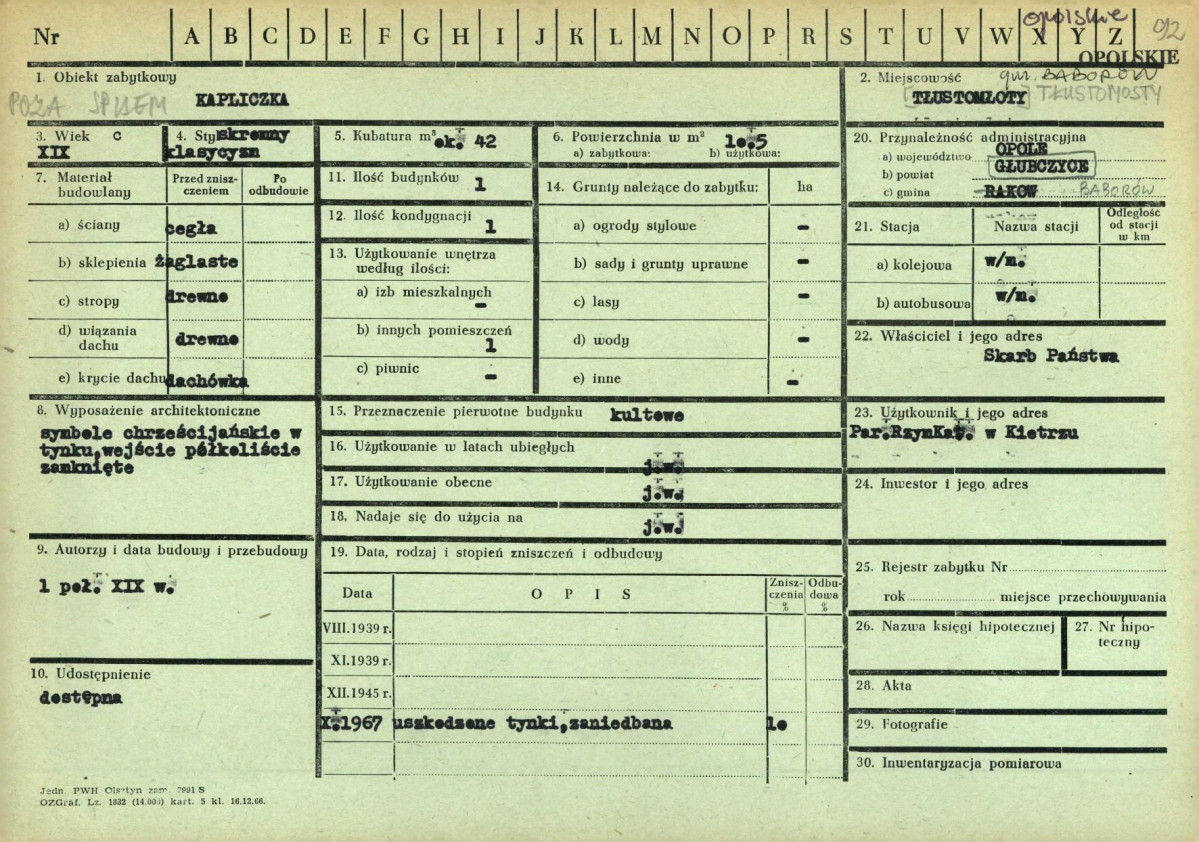 opolskie
92
Nr A B C D E F G H I J K L M N O P R S T U V W X Y Z
OPOLSKIE
1. Obiekt zabytkowy
POZA SPISEM
KAPLICZKA
2. Miejscowość gm. BABORÓW
TŁUSTOMŁOTY TŁUSTOMOSTY
3. Wiek c
XIX
4. Styl skromny
klasycyzm
5. Kubatura m³
ok. 42
6. Powierzchnia w m² 10.5
a) zabytkowa: b) użytkowa:
7. Materiał budowlany
Przed zniszczeniem
Po odbudowie
a) ściany cegła
b) sklepienia żaglaste
c) stropy drewno
d) wiązania dachu drewno
e) krycie dachu dachówka
8. Wyposażenie architektoniczne
symbole chrześcijańskie w
tynku,wejście półkoliście
zamknięte
9. Autorzy i data budowy i przebudowy
1 poł. XIX w.
10. Udostępnienie
dostępna
11. Ilość budynków 1
12. Ilość kondygnacji
1
13. Użytkowanie wnętrza
według ilości:
a) izb mieszkalnych
-
b) innych pomieszczeń
1
c) piwnic -
14. Grunty należące do zabytku: ha
a) ogrody stylowe -
b) sady i grunty uprawne -
c) lasy -
d) wody -
e) inne -
15. Przeznaczenie pierwotne budynku kultowe
16. Użytkowanie w latach ubiegłych
j.w.
17. Użytkowanie obecne j.w.
18. Nadaje się do użycia na j.w.
19. Data, rodzaj i stopień zniszczeń i odbudowy
Data OPIS Zniszczenia % Odbudowa %
VIII.1939 r.
XI.1939 r.
XII.1945 r.
X.1967 uszkodzone tynki,zaniedbana 10
20. Przynależność administracyjna
a) województwo OPOLE
b) powiat GŁUBCZYCE
c) gmina RAKÓW BABORÓW
21. Stacja Nazwa stacji Odległość od stacji w km
a) kolejowa w/m.
b) autobusowa w/m.
22. Właściciel i jego adres
Skarb Państwa
23. Użytkownik i jego adres
Par.RzymKat. w Kietrzu
24. Inwestor i jego adres
25. Rejestr zabytku Nr
rok miejsce przechowywania
26. Nazwa księgi hipotecznej
27. Nr hipoteczny
28. Akta
29. Fotografie
30. Inwentaryzacja pomiarowa
Jedn. PWH Olsztyn zam. 2991 S
OZGraf. Lz. 1832 (14.000) kart. 5 kl. 16.12.66.